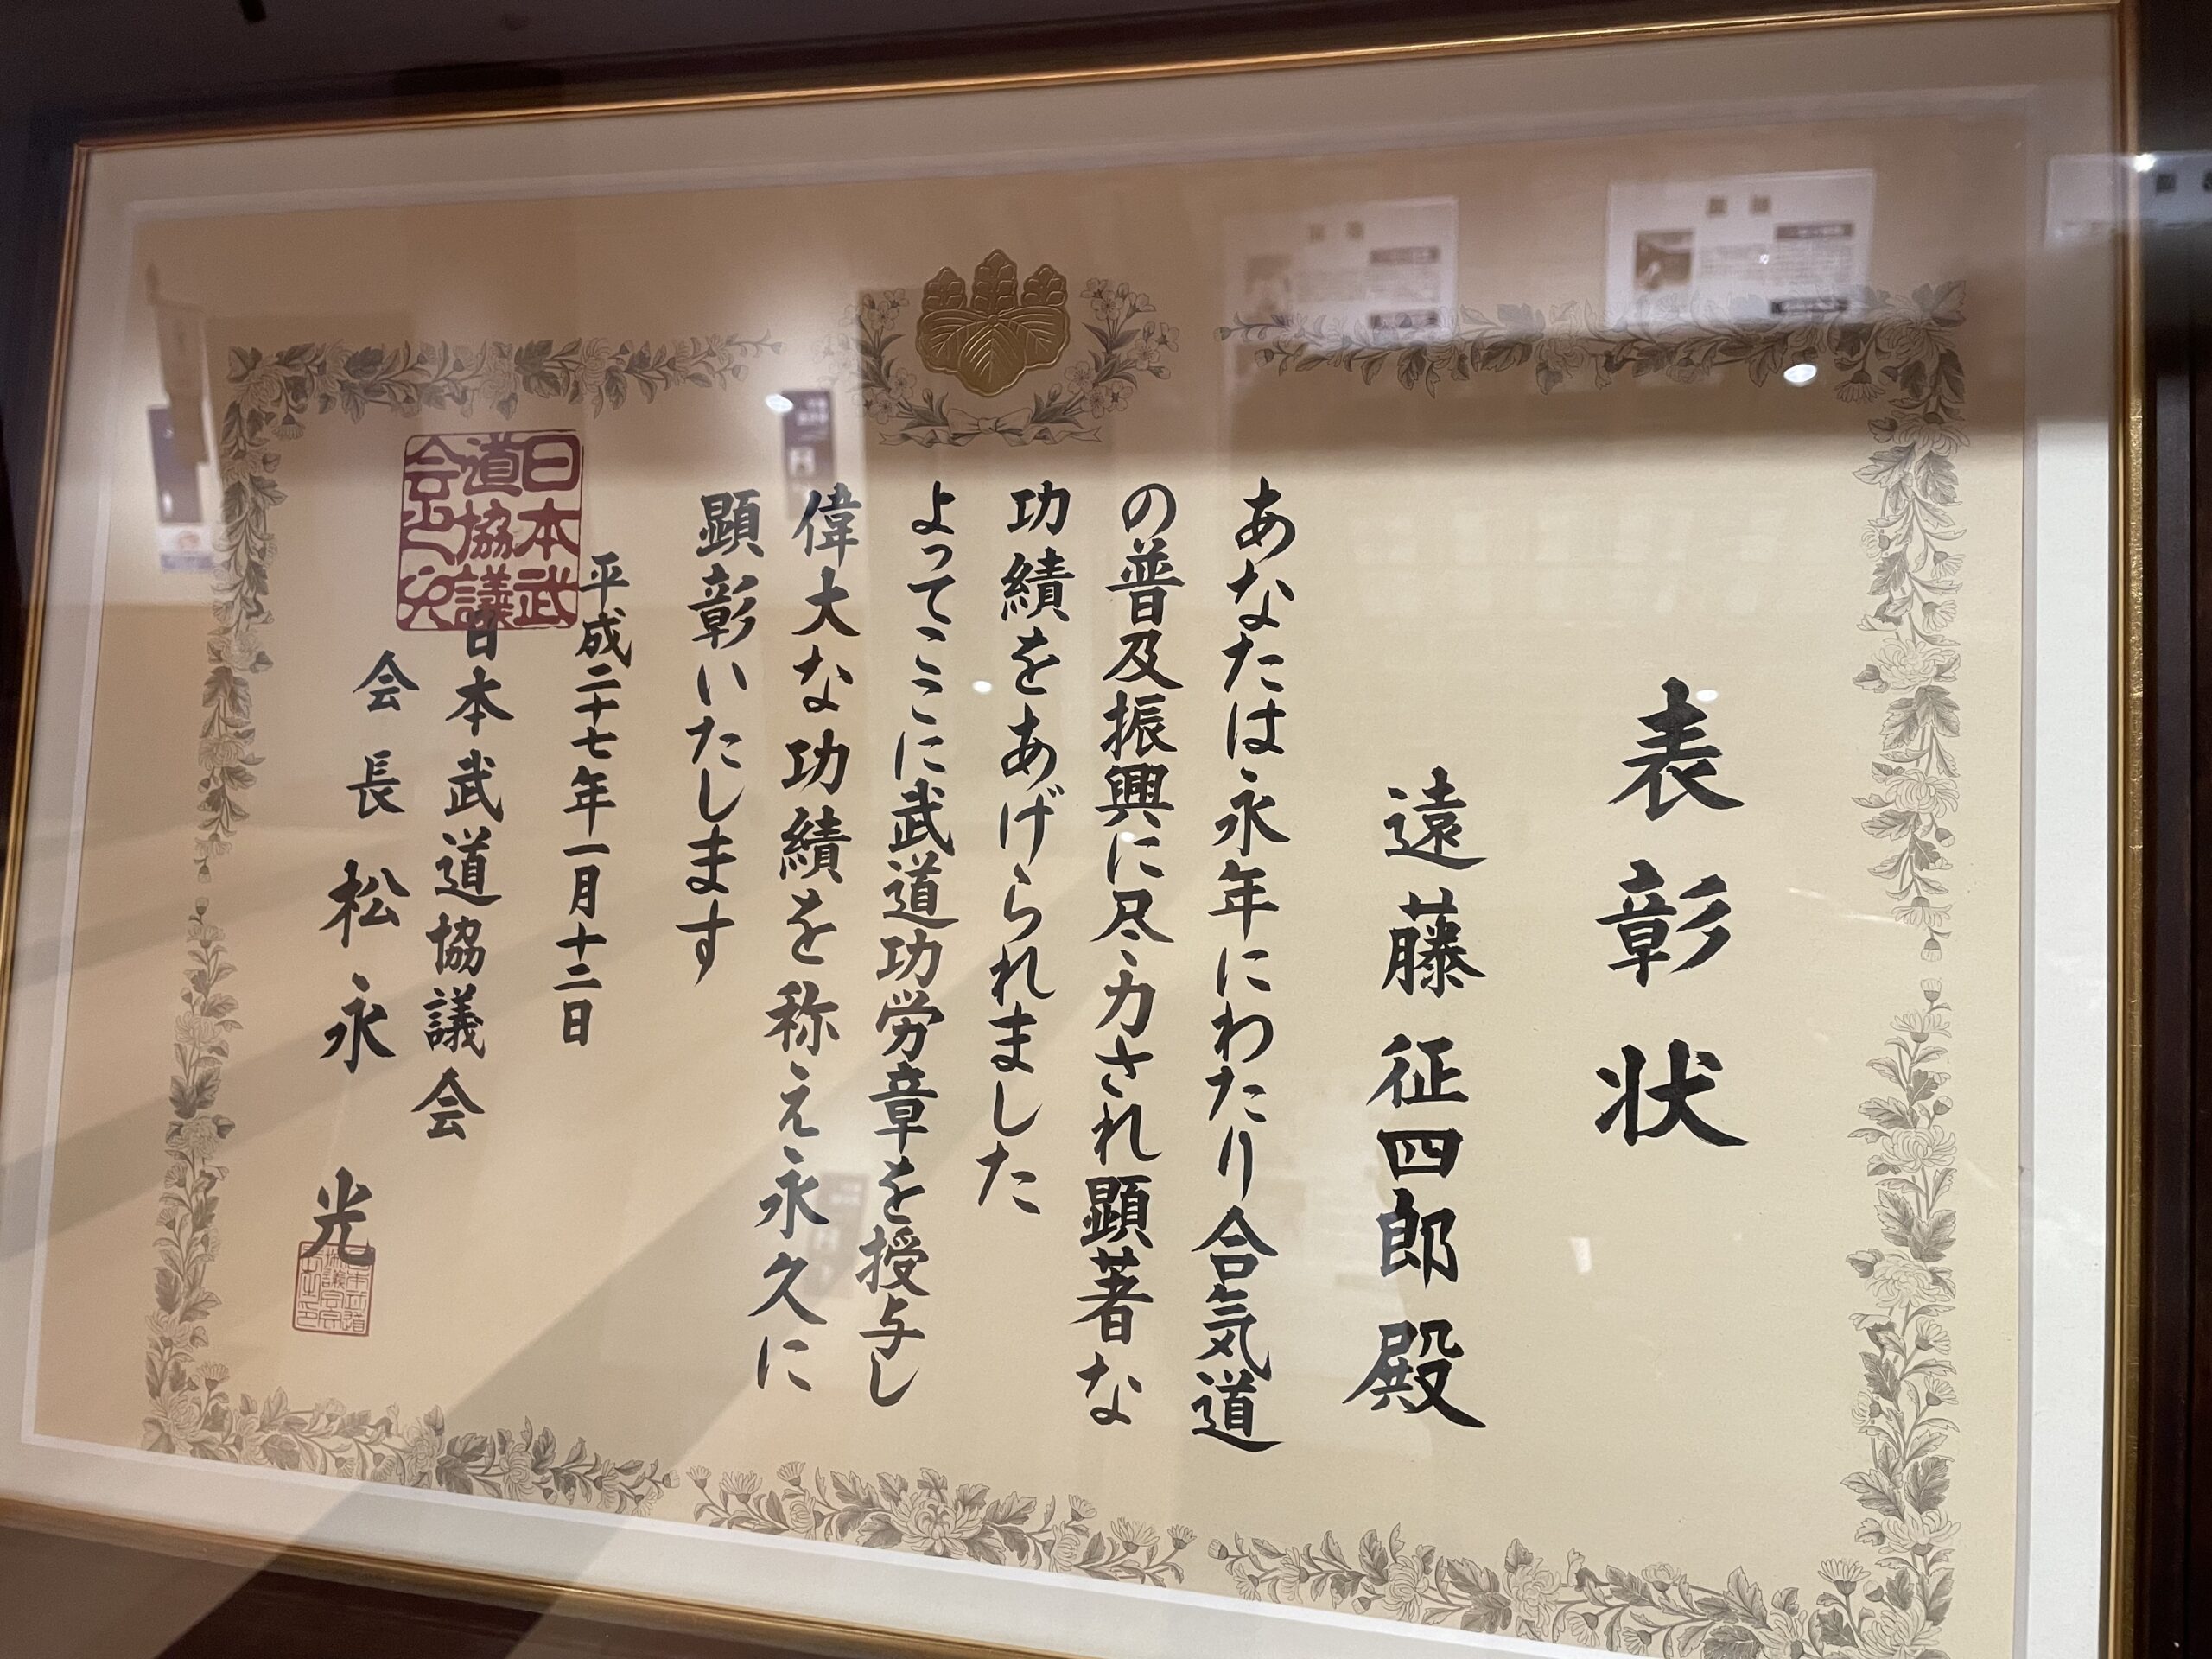 表彰状
遠藤征四郎殿
あなたは永年にわたり合気道
の普及振興に尽力され顕著な
功績をあげられました
よってここに武道功労章を授与し
偉大な功績を称え永久に
顕彰いたします
平成二十七年一月十二日
日本武道協議会
会長 松永光
日本武
道協議
会之印